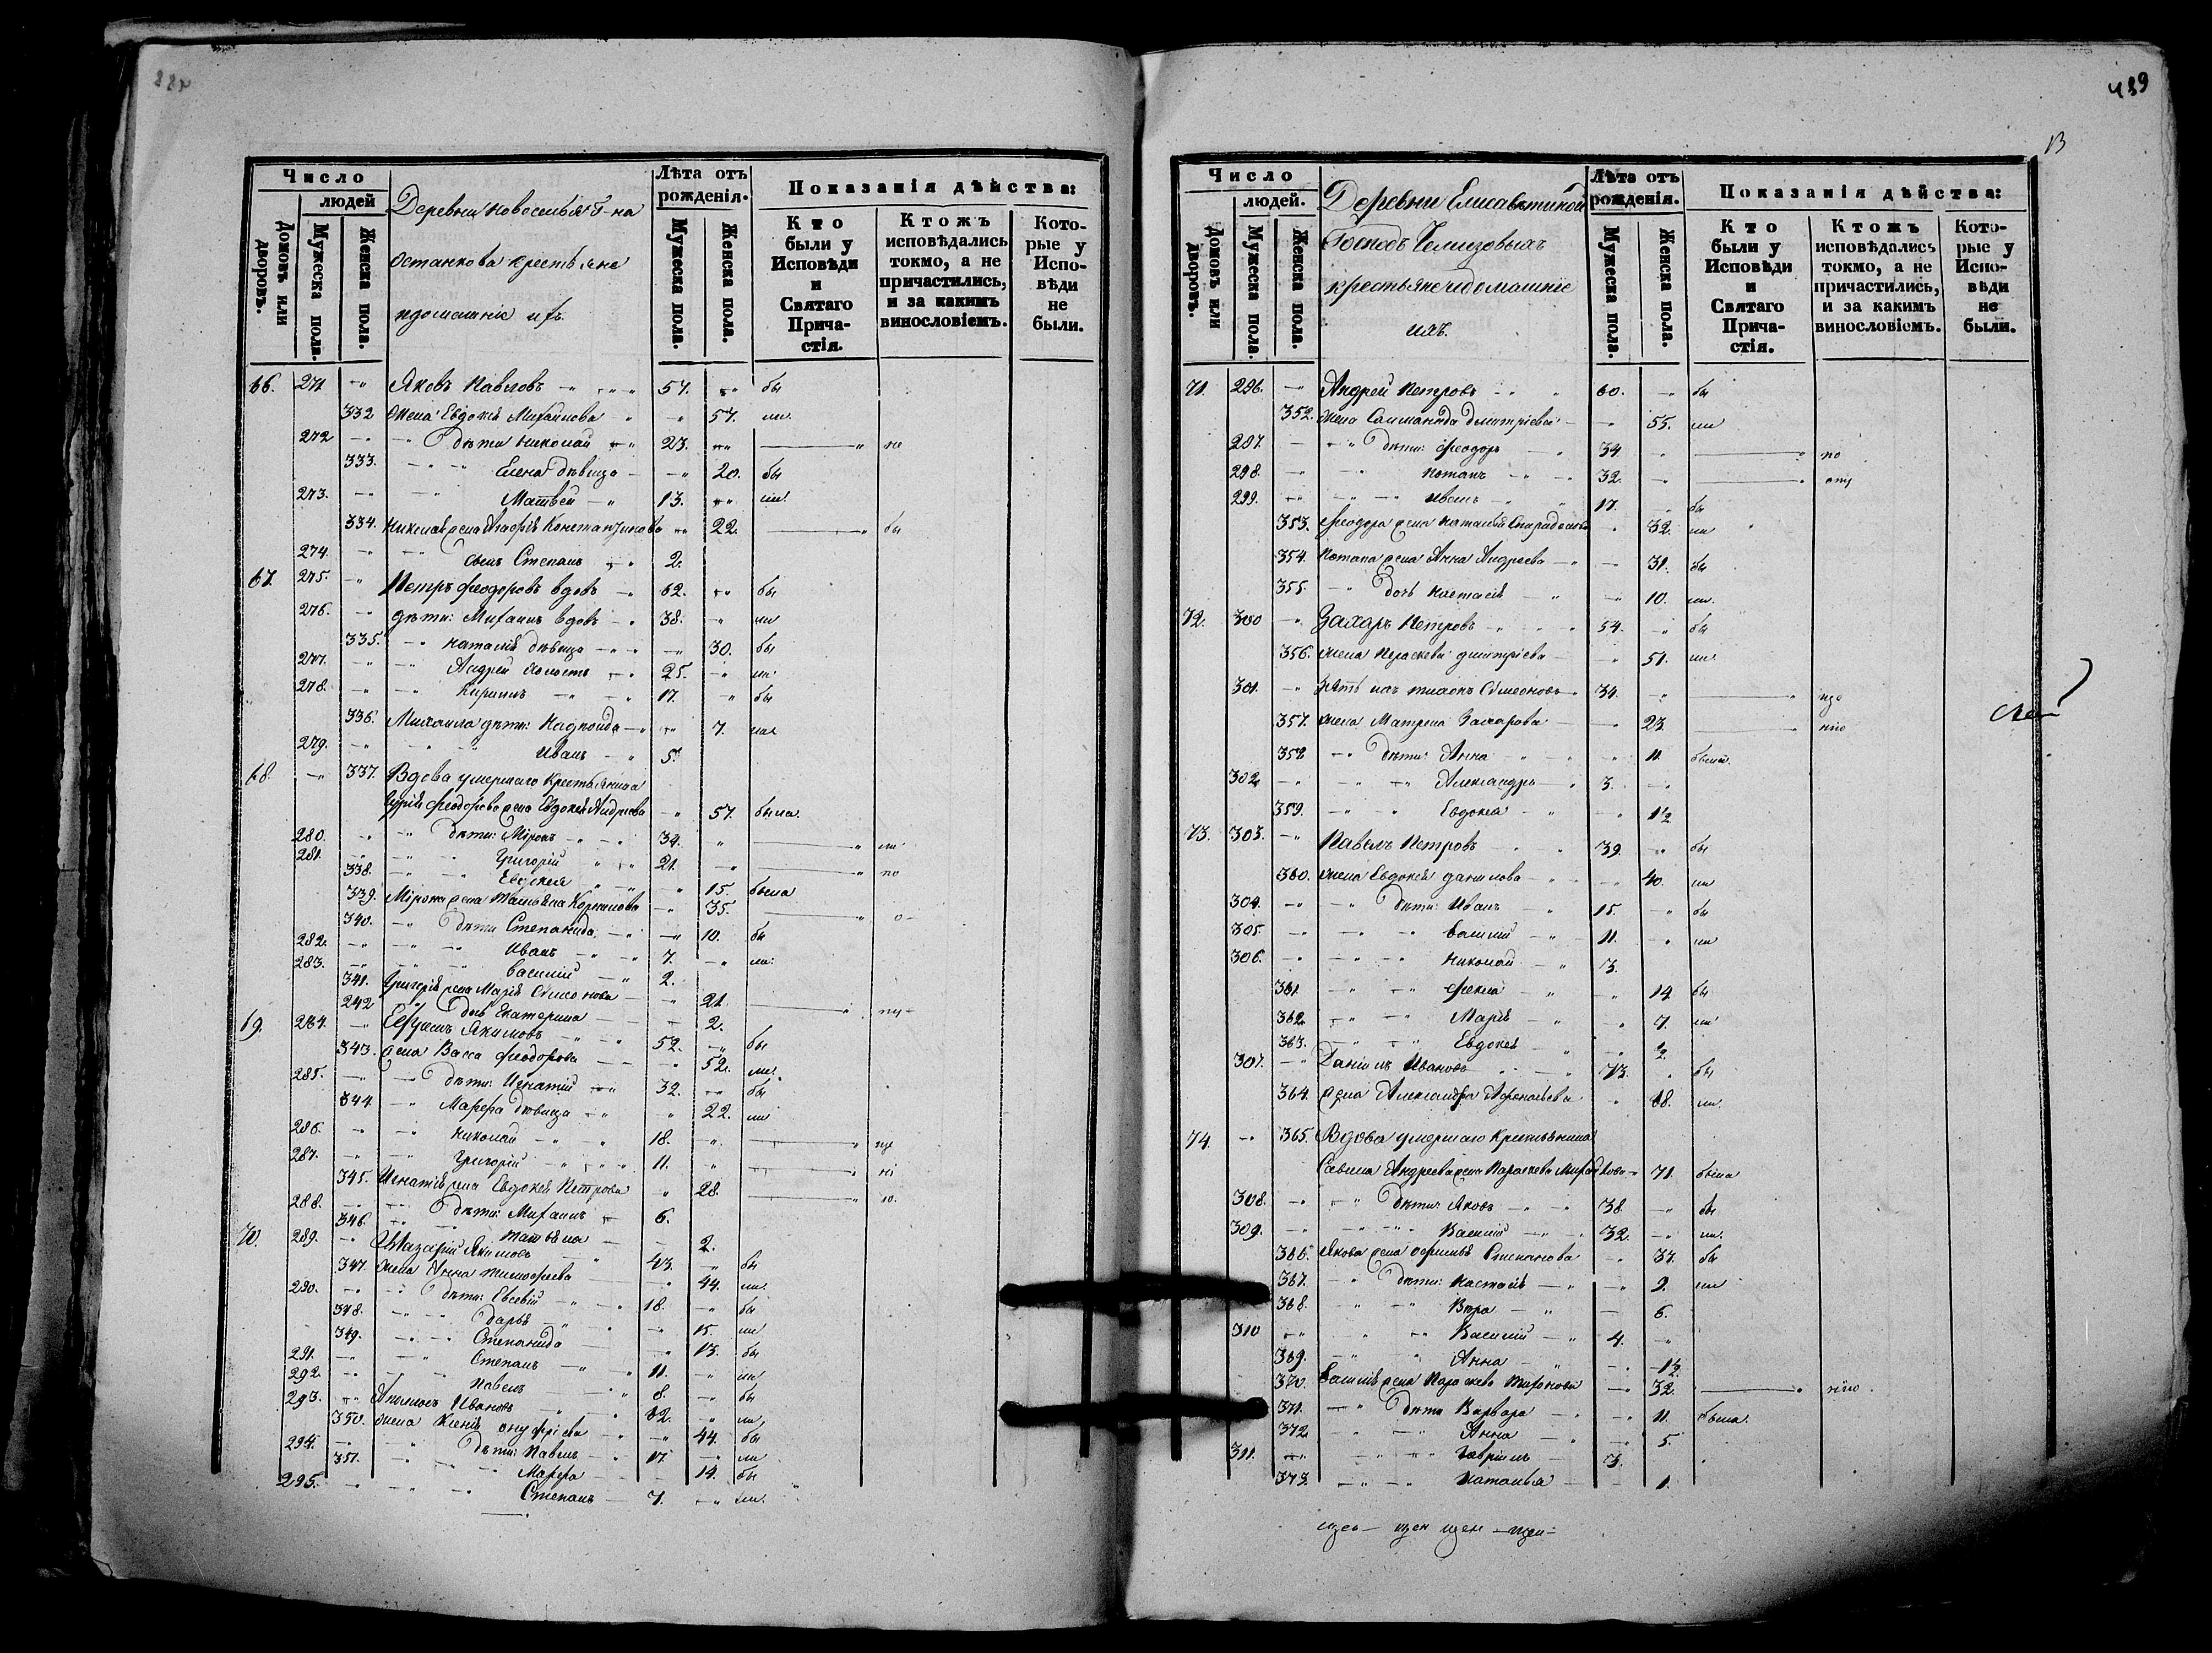 439
13
Число
людей
Домовъ или дворовъ.
Мужеска пола.
Женска пола.
Деревни Новоселья Г-на
Останкова крестьяне
идомашніе ихъ.
Лѣта отъ рожденія.
Мужеска пола.
Женска пола.
Показанія дѣйства:
Кто были у Исповѣди и Святаго Причастія.
Ктожъ исповѣдались токмо, а не причастились, и за какимъ винословіемъ.
Которые у Исповѣди не были.
66. 271 Яковъ Павловъ 57. бы
332 Жена Евдокія Михайлова 57. ли
272 дѣти Николай 23.
333. Елена дѣвица 20. бы
273. Матвей 13. ли
334. Николая жена Агафія Константинова 22. бы
274. сынъ Степанъ 2.
67. 275. Петръ Феодоровъ вдовъ 62. бы
276. дѣти: Михаилъ вдовъ 38. ли
335. Наталія дѣвица 30. бы
277. Андрей холостъ 25. ли
278. Кирилъ 17. бы
336. Михаила дѣти: 7.
279. Иванъ 5.
68. 337. Вдова умершаго крестьянина
Феодорова жена Евдокія Андреева 57. была
280. дѣти: Міронъ 34.
281. Григорій 21.
338. Евдокея 15. была
339. Мірона жена Татьяна 35.
340. дѣти Степанида 10. бы
282. Иванъ 7. ли
283. Василій 2.
341. Григорія жена Марія Симонова 21.
242 дочь Екатерина 2.
69. 284. Ефремъ Якимовъ 52. бы
343. жена Васса Феодорова 52. ли
285. дѣти: Игнатій 32. бы
344. Марфа дѣвица 22. ли
286. Николай 18.
287. Григорій 11.
345. Игнатія жена Евдокея Петрова 28.
288. дѣти: Михаилъ 6.
346. Татьяна 2.
70. 289. Назарій Якимовъ 43. бы
347. жена Анна Тимофеева 44. ли
290. дѣти: Евсевій 18. бы
348. Дарья 15. ли
349. Степанида 13. бы
291. Степанъ 11. ли
292. Павелъ 8. бы
293. Ивановъ 62. ли
350. жена Ксенія Онуфріева 44. бы
294. дѣти: Павелъ 17. ли
351. Марфа 14. бы
295. Степанъ 7. ли
Число
людей.
Домовъ или дворовъ.
Мужеска пола.
Женска пола.
Деревни Елисаветиной
Господъ
крестьяне идомашніе
ихъ.
Лѣта отъ рожденія.
Мужеска пола.
Женска пола.
Показанія дѣйства:
Кто были у Исповѣди и Святаго Причастія.
Ктожъ исповѣдались токмо, а не причастились, и за какимъ винословіемъ.
Которые у Исповѣди не были.
71. 296. Андрей Петровъ 60. бы
352. жена Дмитріева 55. ли
297. дѣти: Феодоръ 34. по
298. Потапъ 32.
299. Иванъ 17. бы
353. Феодора жена Наталія Спиридонова 32. ли
354. Потапа жена Анна Андреева 31. бы
355. дочь Настасія 10. ли
72. 300 Захаръ Петровъ 54. бы
356. жена Параскева Дмитріева 51. ли
301. зять ихъ Симеоновъ 34.
357. жена Матрена Захарова 23.
358 дѣти: Анна 11. была
302 Александръ 3.
359. Евдокея 1½
73. 303. Павелъ Петровъ 39. бы
360. жена Евдокея Данилова 40. ли
304. дѣти: Иванъ 15. бы
305. Василій 11. ли
306. Николай 3.
361 Фекла 14 бы
362. Марія 7. ли
363. Евдокея ½
307. Даніилъ Ивановъ 73. бы
364. жена Александра Афонасьева 68. ли
74. 365. Вдова умершаго крестьянина
Савелія Андреева жена Параскева Михайлова 71. была
308. дѣти: Яковъ 38. бы
309. Василій 32. ли
366. Якова жена Степанова 37. бы
367. дѣти: Настасія 9. ли
368. Вѣра 6.
310 Василій 4.
369. Анна 1½
370. Василія жена Параскева 32.
371. дѣти Варвара 11. была
372 Анна 5.
311. Гавріилъ 3.
373 Наталья 1.